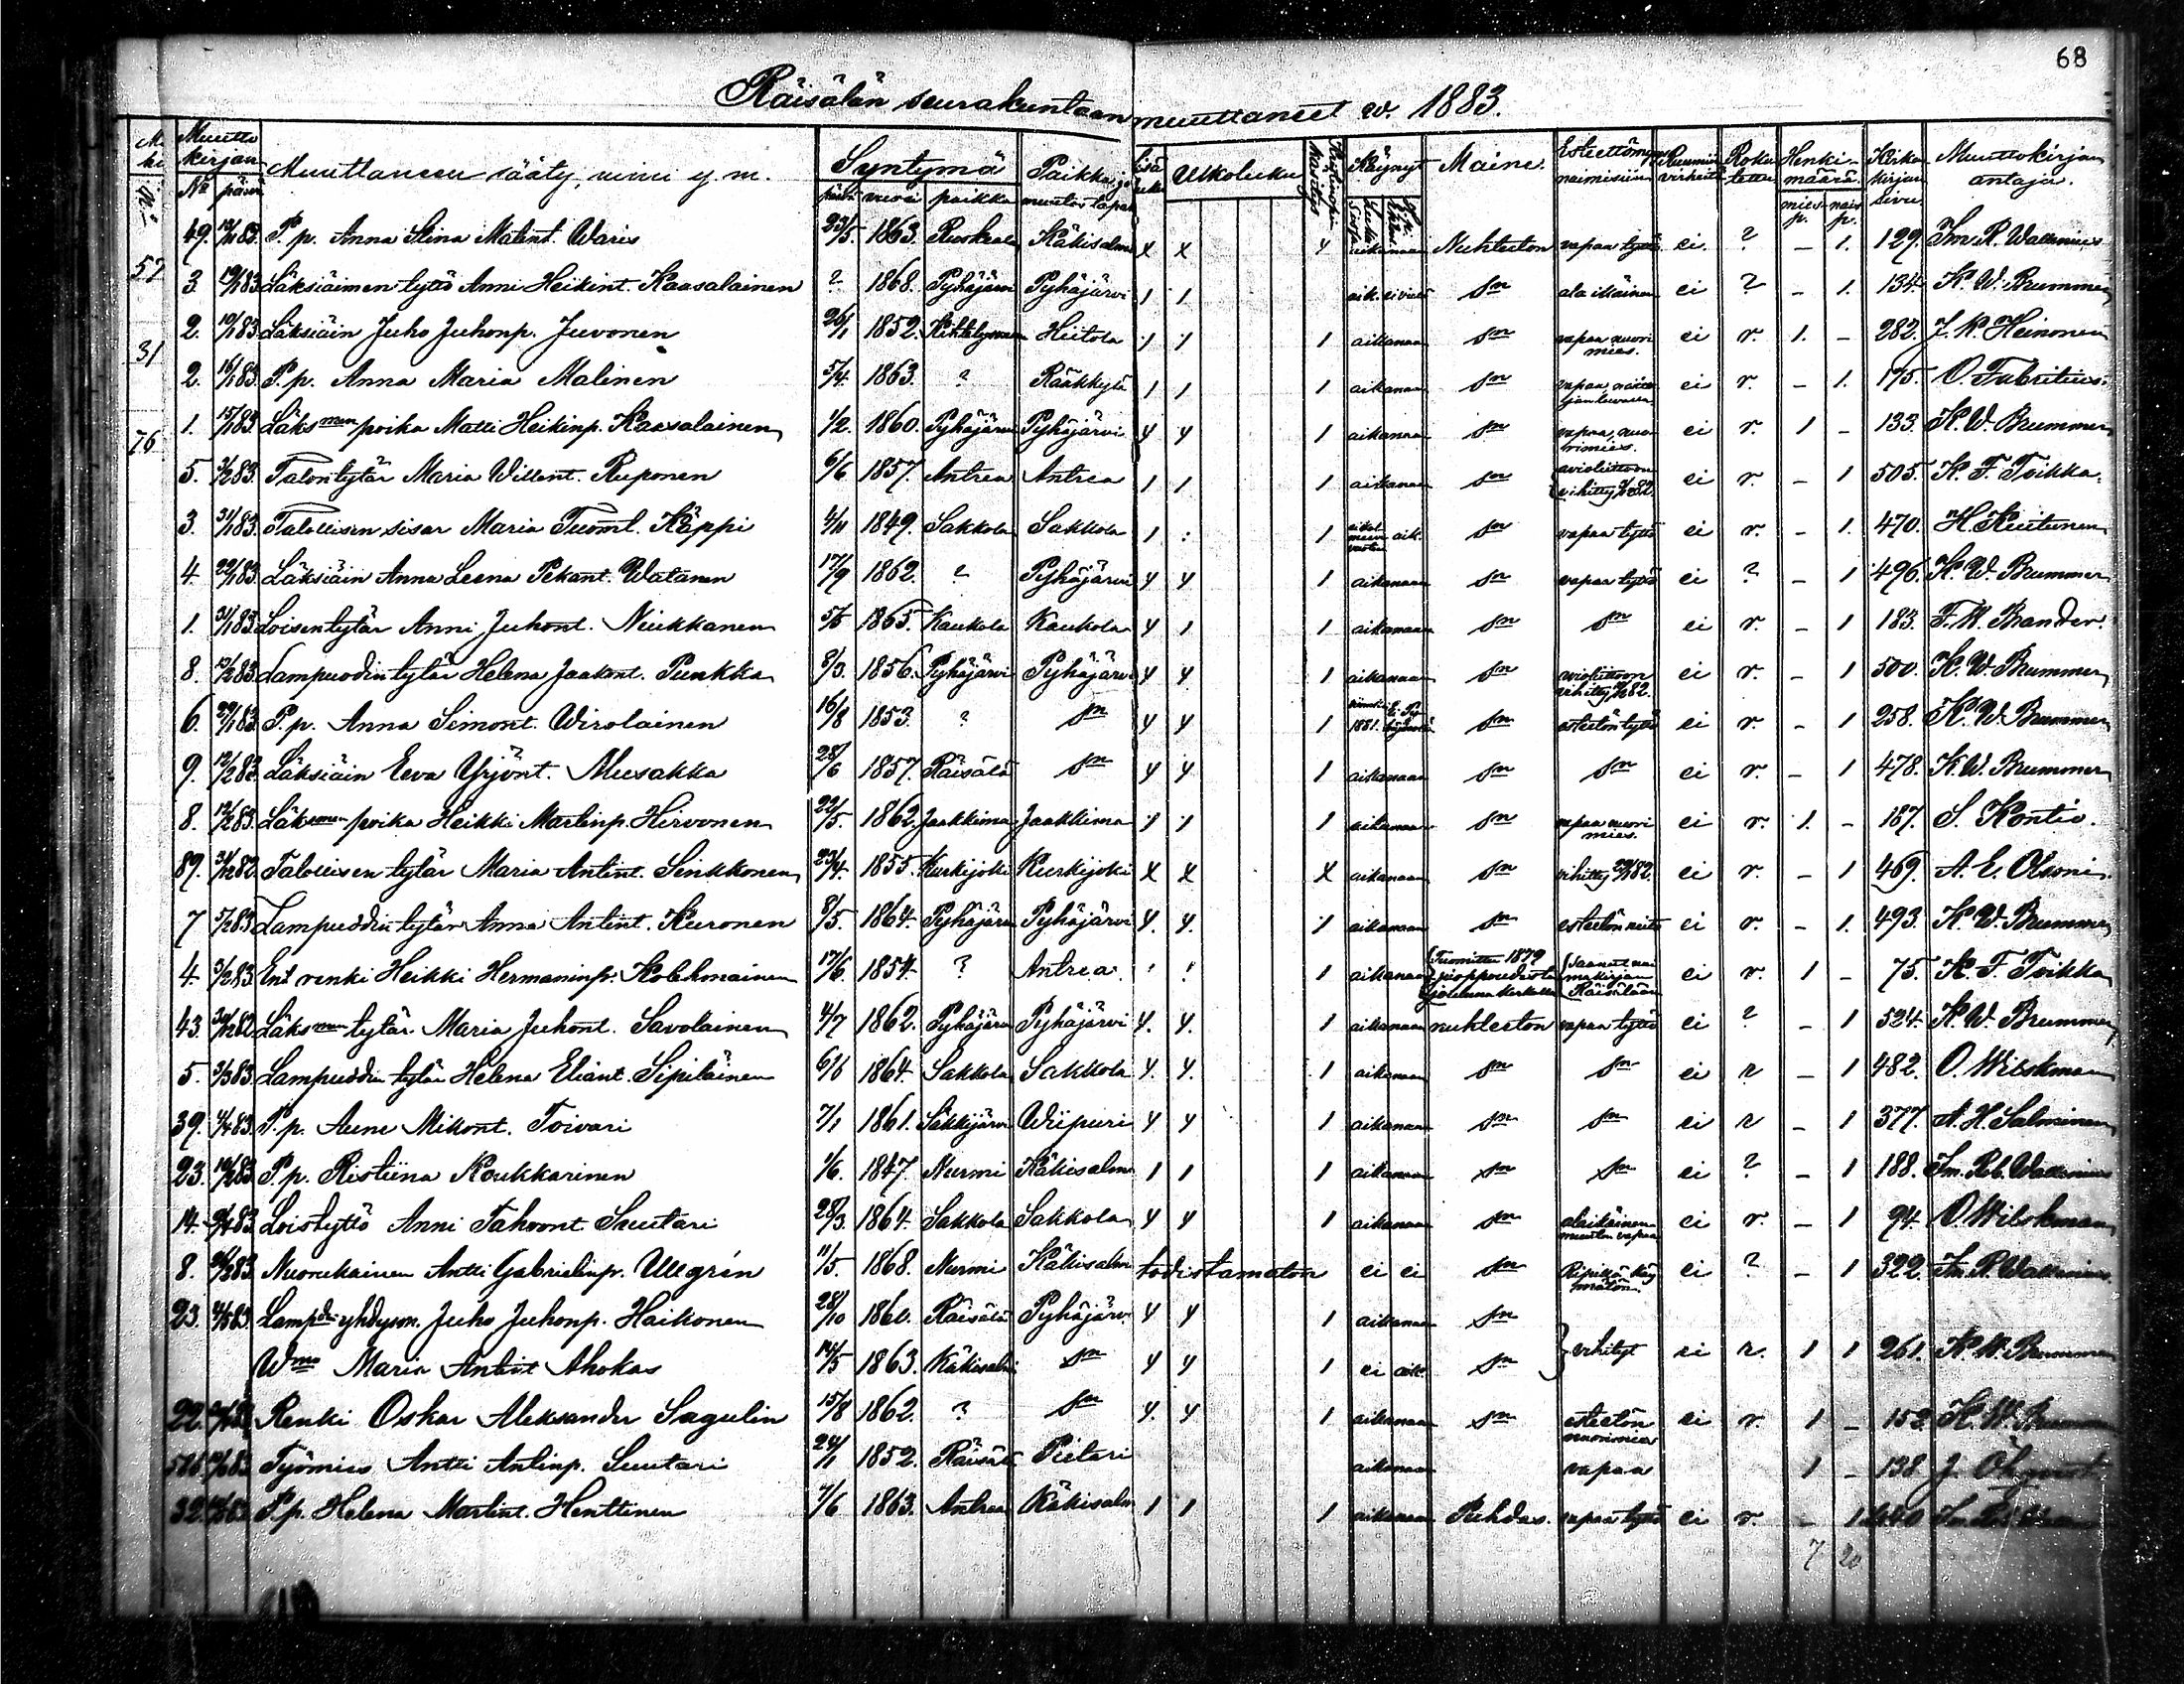 68
Räisälän seurakuntaan muuttaneet w. 1883.
Muutto kirjan Muuttaneen sääty, nimi y. m. Syntymä Paikka, jo Sisä luku Ulkoluku Käynyt Maine. Esteettömyys naimisiin Ruumiin virheitä Roko tettu Henki- määrä. Kirkon kirjan sivu. Muuttokirjan antaja.
No päivä päivä vuosi paikka muutos tapah mies p. nais p.
49. P. p. Anna Stina Matint. Waris 23/5. 1863. Ruskeala Käkisalmi x x x aikanaan Nuhteeton vapaa tyttö ei. ? – 1. 129. Im R. Wallenius
57 3 Läksiäimen tyttö Anni Heikint. Kaasalainen ? 1868. Pyhäjärvi Pyhäjärvi 1 1 aik. ei vielä sm ala ikäinen ei ? – 1. 134. K. W. Brummer
2. Läksiäin Juho Juhonp. Juvonen 26/1 1852. Kihtelysvaara Hiitola 1 1 1 aikanaan sm vapaa nuori mies. ei r. 1. – 282. J. K. Heinonen
31 2. 16/1 83. P. p. Anna Maria Malinen 5/4. 1863. ? Rääkkylä 1 1 1 aikanaan sm vapaa ei r. – 1. 175. O. Fabritius.
76 1. 15/1 83. Läksmen poika Matti Heikinp. Kaasalainen 1/2. 1860. Pyhäjärvi Pyhäjärvi y y 1 aikanaan sm vapaa, nuorimies. ei r. 1 – 133. K. W. Brummer
5. 3/2 83. Talontytär Maria Willent. Ruponen 6/6 1857. Antrea Antrea 1 1 1 aikanaan sm avioliittoon vihitty ei r. – 1 505. K. F. Toikka.
3. 31/1 83. Talollisen sisar Maria Tuomt. Käppi 4/11 1849. Sakkola Sakkola 1 : 1 aik. sm vapaa tyttö ei r. – 1. 470. H. Kiutunen
4. 22/1 83. Läksiäin Anna Leena Pekant. Watanen 17/9 1862. ? Pyhäjärvi y y 1 aikanaan sm vapaa tyttö ei ? – 1 496. K. W. Brummer
1. 31/1 83. Loisentytär Anni Juhont. Niukkanen 5/5 1865. Kaukola Kaukola y 1 1 aikanaan sm sm ei r. – 1 183. F. W. Brander.
8. Lampuodin tytär Helena Jaakont. Punkka 8/3. 1856. Pyhäjärvi Pyhäjärvi y y 1 aikanaan sm avioliittoon vihitty ei r. – 1 500. K. W. Brummer
6. P. p. Anna Simont. Wirolainen 16/8 1853. ? sm y y 1 1881. sm esteetön tyttö ei r. – 1 258. K. W. Brummer
9. 12/2 83. Läksiäin Eeva Yrjönt. Meesakka 28/6 1857. Räisälä sm y y 1 aikanaan sm sm ei r. – 1 478. K. W. Brummer
8. 12/2 83. Läksmen poika Heikki Martinp. Hirvonen 22/5. 1862. Jaakkima Jaakkima y 1 1 aikanaan sm vapaa nuori mies. ei r. 1. – 187. S. Kontio.
89. 31/12 82 Talollisen tytär Maria Antint. Sinkkonen 23/4. 1855. Kurkijoki Kurkijoki x x x aikanaan sm vihitty ei r. – 1 469. A. E. Olsoni.
7 5/2 83 Lampuodin tytär Anna Antint. Kuronen 8/5. 1864. Pyhäjärvi Pyhäjärvi y. y. 1 aikanaan sm esteetön neito ei r. – 1. 493. K. W. Brummer
4. 5/2 83. Ent renki Heikki Hermaninp. Kolehmainen 17/6. 1854. ? Antrea 1 aikanaan Tuomittu 1879 Saanut nai makirjan Räisälään ei r. 1 – 75. K. F. Toikka
43. 30/12 82 Läksmen tytär Maria Juhont. Savolainen 4/7 1862. Pyhäjärvi Pyhäjärvi y. y. 1 aikanaan nuhteeton vapaa tyttö ei ? – 1 524. K. W. Brummer
5. 3/3 83. Lampuodin tytär Helena Eliant. Sipiläinen 6/6 1864. Sakkola Sakkola y. y. 1 aikanaan sm sm ei r – 1 482. O. Wilskman
39. P. p. Aune Mikont. Toivari 7/1 1861. Säkkijärvi Wiipuri y y 1 aikanaan sm sm ei r – 1 377. A. H. Salminen
23. P. p. Ristiina Koukkarinen 1/6. 1847. Nurmi Käkisalmi 1 1 1 aikanaan sm sm ei ? – 1 188. Im. Rob. Wallenius
14. Loistyttö Anni Tahvont Suutari 28/3. 1864. Sakkola Sakkola y y 1 aikanaan sm alaikäinen muuton vapaa ei r. – 1 94. O Wilskman
8. Nuorukainen Antti Gabrielinp. Ullgrén 11/5. 1868. Nurmi Käkisalmi todistamaton ei ei sm Ripillä käymätön ei ? – 1 322. Im R. Wallenius
23. Lampdin yhdysm. Juho Juhonp. Haikonen 28/10 1860. Räisälä Pyhäjärvi y y 1 aikanaan sm
Wmo Maria Antint Ahokas 14/5 1863. Käkisalmi sm y y 1 ei aik. sm vihityt ei r. 1 1 261. K. W. Brummer
22. Renki Oskar Aleksander Sagulin 15/8 1862. ? sm y. y 1 aikanaan sm esteetön nuorimies ei r. 1 – 152 K. W. Brummer
Työmies Antti Antinp. Suutari 24/1 1852. Räisälä Pietari aikanaan vapaa 1 – 138 J.
32. P. p. Helena Martint. Henttinen 7/6 1863. Antrea Käkisalmi 1 1 1 aikanaan Puhdas. vapaa tyttö ei r. – 1
7 20